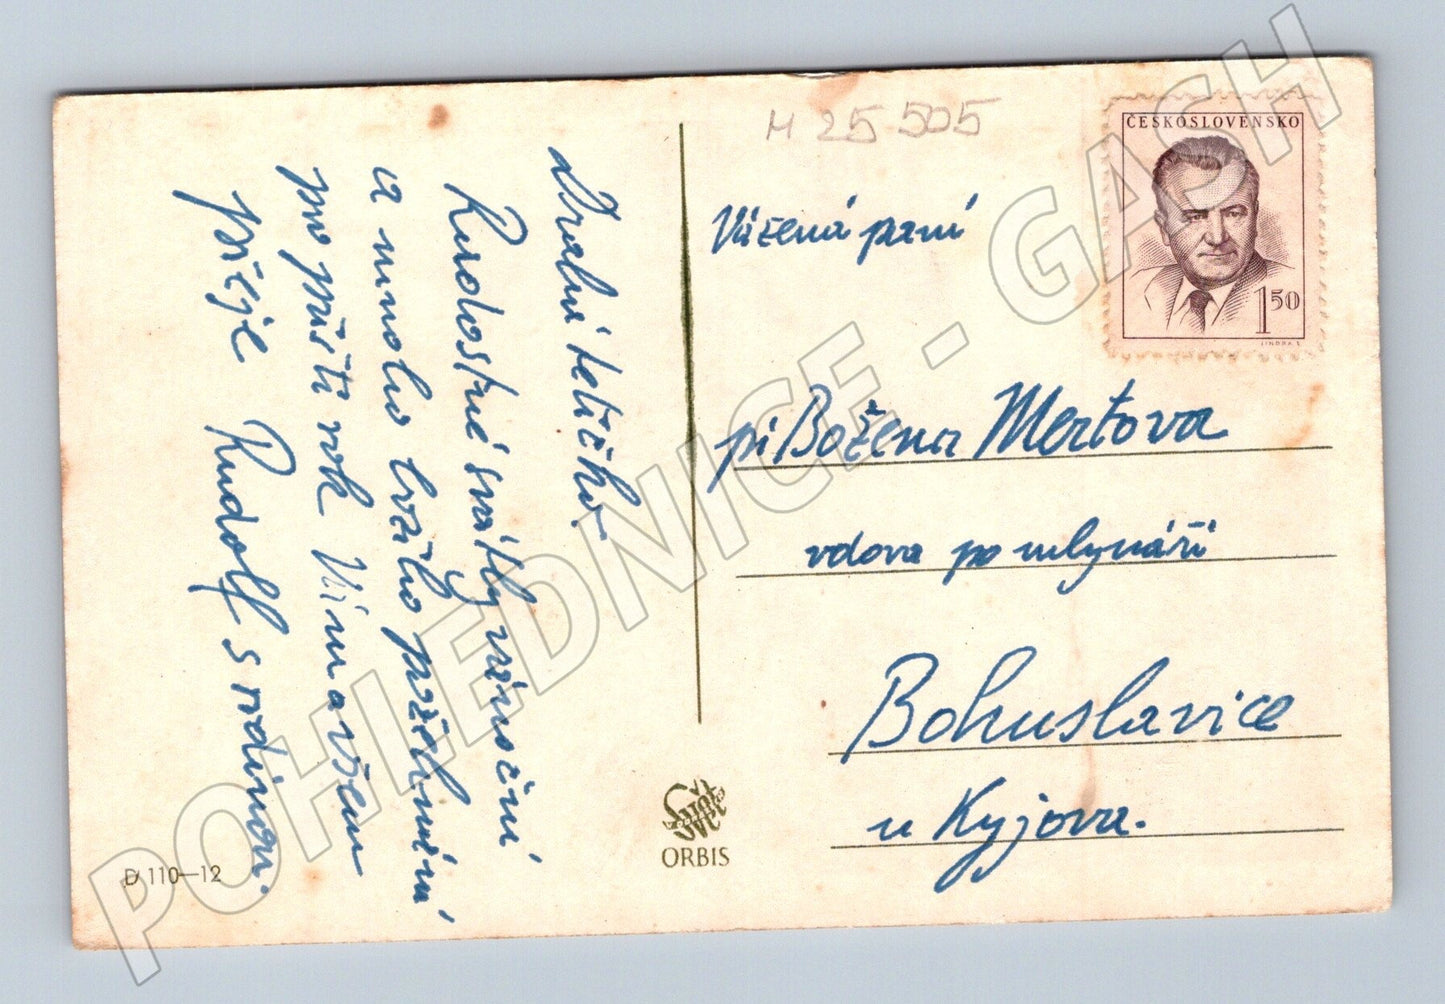 Drahá tetičko
Radostné svátky vánoční
a mnoho tvého požehnání
pro příští rok Vám a všem
přeje Rudolf s rodinou.
M 25 505
ČESKOSLOVENSKO
1 50
JINDRA
Vážená paní
pí Božena Mertova
vdova po mlynáři
Bohuslavice
u Kyjova.
Svět
ORBIS
D 110—12
POHLEDNICE - GASH